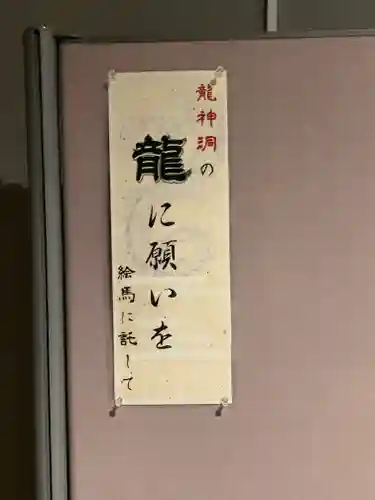 龍神洞の
龍に願いを
絵馬に託して